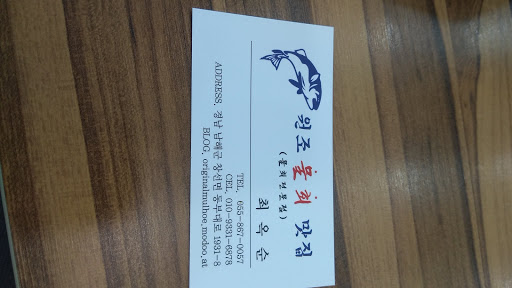 원조 물회 맛집
(물회전문점)
최옥순
TEL. 055-867-0057
CEL. 010-9331-6878
ADDRESS. 경남 남해군 창선면 동부대로 1931-8
BLOG. originalmulhoe.modoo.at